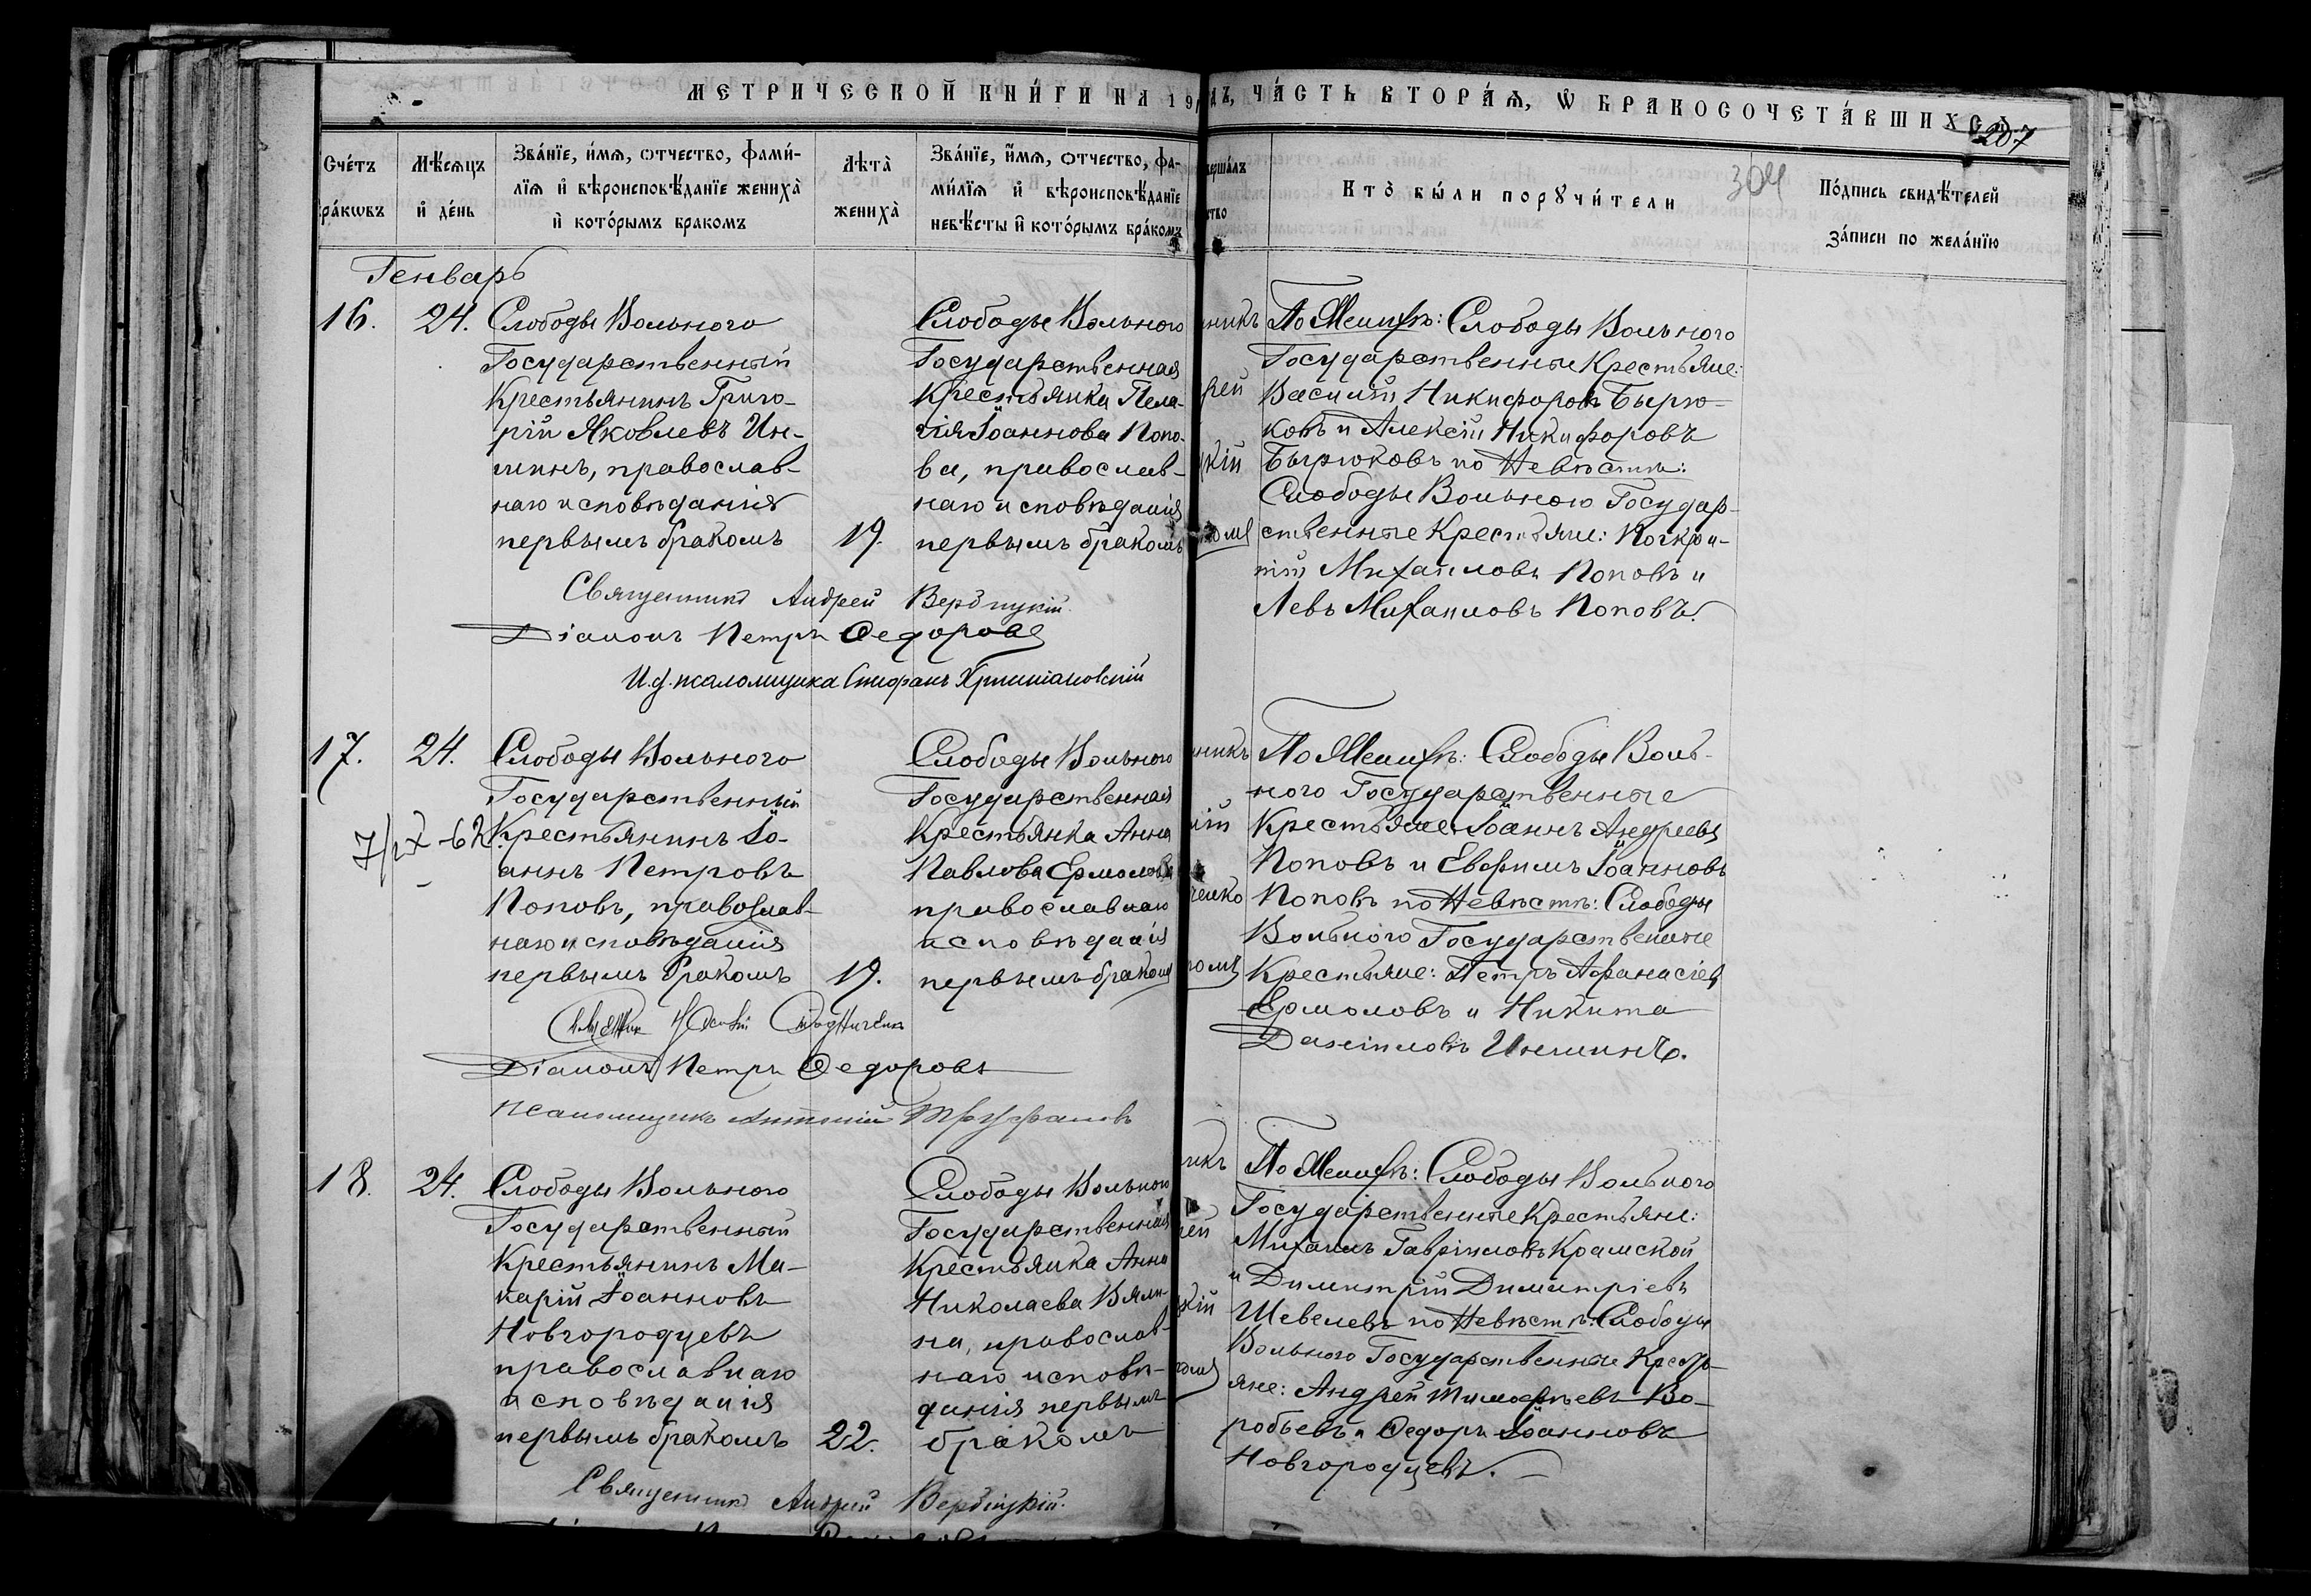 МЕТРИЧЕСКОЙ КНИ́ГИ НА 19
ДЪ, ЧА́СТЬ ВТОРА́Ѧ, Ѡ БРАКОСОЧЕТА́ВШИХСѦ
207
304
Сче́тъ
ра́кѡвъ
Мѣ́сѧцъ
и҆ де́нь
Зва́нїе, и҆́мѧ, ѻтчество, фами́-
лїѧ и҆ вѣроисповѣ́данїе жениха̀
и҆ кото́рымъ бракомъ
Лѣта̀
жениха̀
Зва́нїе, и҆́мѧ, ѻтчество, фа-
ми́лїѧ и҆ вѣроисповѣ́данїе
невѣ́сты и҆ кото́рымъ бра́комъ
вершалъ
ство
Кто̀ бы́ли порꙋчи́тели
По́дпись свидѣ́телей
за́писи по жела́нїю
Генварь
16.
24.
Слободы Вольного
Государственный
Крестьянинъ Григо-
рій Яковлевъ Ин-
шинъ, православ-
наго исповѣданія
первымъ бракомъ
19.
Слободы Вольного
Государственная
Крестьянка Пела-
гія Іоаннова Попо-
ва, православ-
наго исповѣданія
первымъ бракомъ
никъ
рей
кій
По Женихѣ: Слободы Вольного
Государственные Крестьяне:
Василій Никифоровъ Бырю-
ковъ и Алексій Никифоровъ
Бырюковъ по Невѣстѣ:
Слободы Вольного Государ-
ственные Крестьяне:
Михаиловъ Поповъ и
Левъ Михаиловъ Поповъ.
Священникъ Андрей Вербицкій.
Діаконъ Петръ Ѳедоровъ
И.д. псаломщика Стефанъ
17.
24.
7/IX-62
Слободы Вольного
Государственный
Крестьянинъ Іо-
аннъ Петровъ
Поповъ, православ-
наго исповѣданія
первымъ бракомъ
19.
Слободы Вольного
Государственная
Крестьянка Анна
Павлова Ермолова
православнаго
исповѣданія
первымъ бракомъ
никъ
ій
ченко
По Женихѣ: Слободы Воль-
ного Государственные
Крестьяне: Іоаннъ Андреевъ
Поповъ и Евфимъ Іоанновъ
Поповъ по Невѣстѣ: Слободы
Вольного Государственные
Крестьяне: Петръ Афанасіевъ
Ермоловъ и Никита
Даніиловъ Иншинъ.
Діаконъ Петръ Ѳедоровъ
Псаломщикъ Антоній Труфановъ
18.
24.
Слободы Вольного
Государственный
Крестьянинъ Ма-
карій Іоанновъ
Новгородцевъ
православнаго
исповѣданія
первымъ бракомъ
22.
Слободы Вольного
Государственная
Крестьянка Анна
Николаева Вяли-
на, православ-
наго исповѣ-
данія первымъ
бракомъ
икъ
рей
кій
По Женихѣ: Слободы Вольного
Государственные Крестьяне:
Михаилъ Гавріиловъ Крамской
и Димитрій Димитріевъ
Шевелевъ по Невѣстѣ: Слободы
Вольного Государственные Кресть-
яне: Андрей Тимофѣевъ Во-
робьевъ и Ѳедоръ Іоанновъ
Новгородцевъ.
Священникъ Андрей Вербицкій.